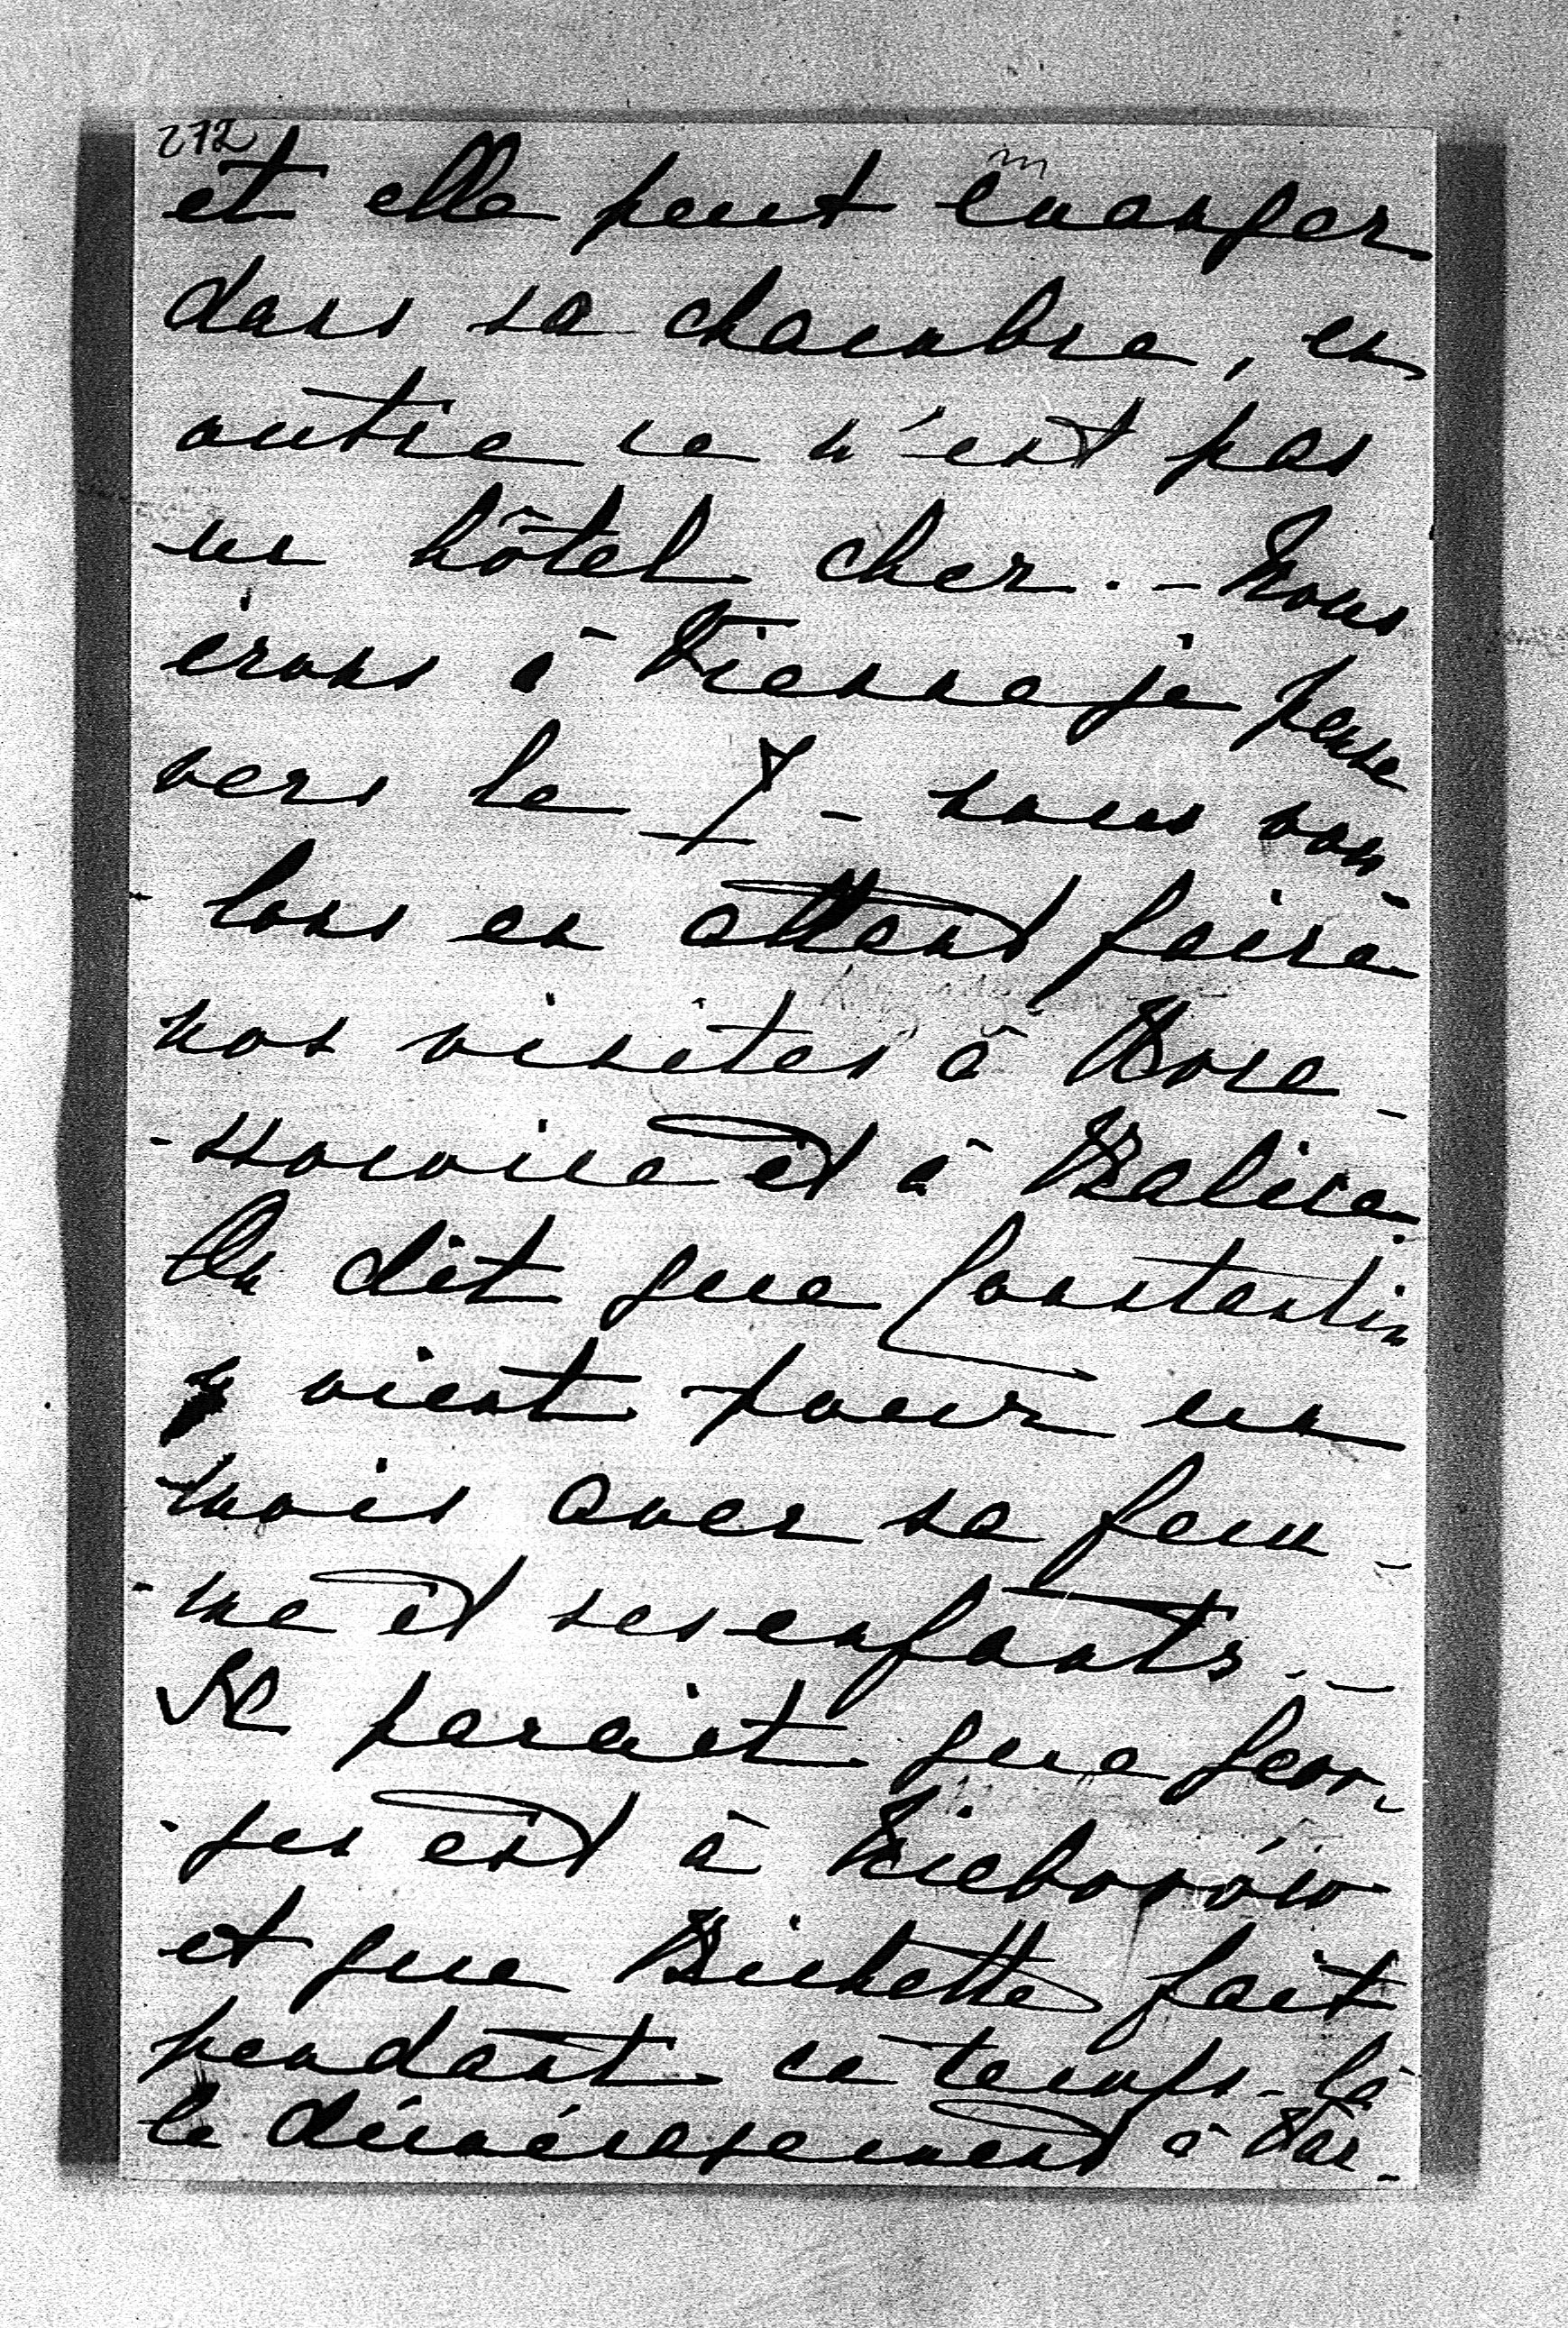 272
et elle peut manger
dans sa chambre, en
outre ce n'est pas
un hôtel cher. - Nous
irons à Vienne je pense
vers le 7 - nous vou-
- lons en attend faire
nos visites à
et à Balice.
On dit que Constantin
y vient pour un
mois avec sa fem-
- me et ses enfants. -
Il paraît que Geor-
- ges est à Nieborów
et que Bichette fait
pendant ce temps-là
le déménagement à Var-